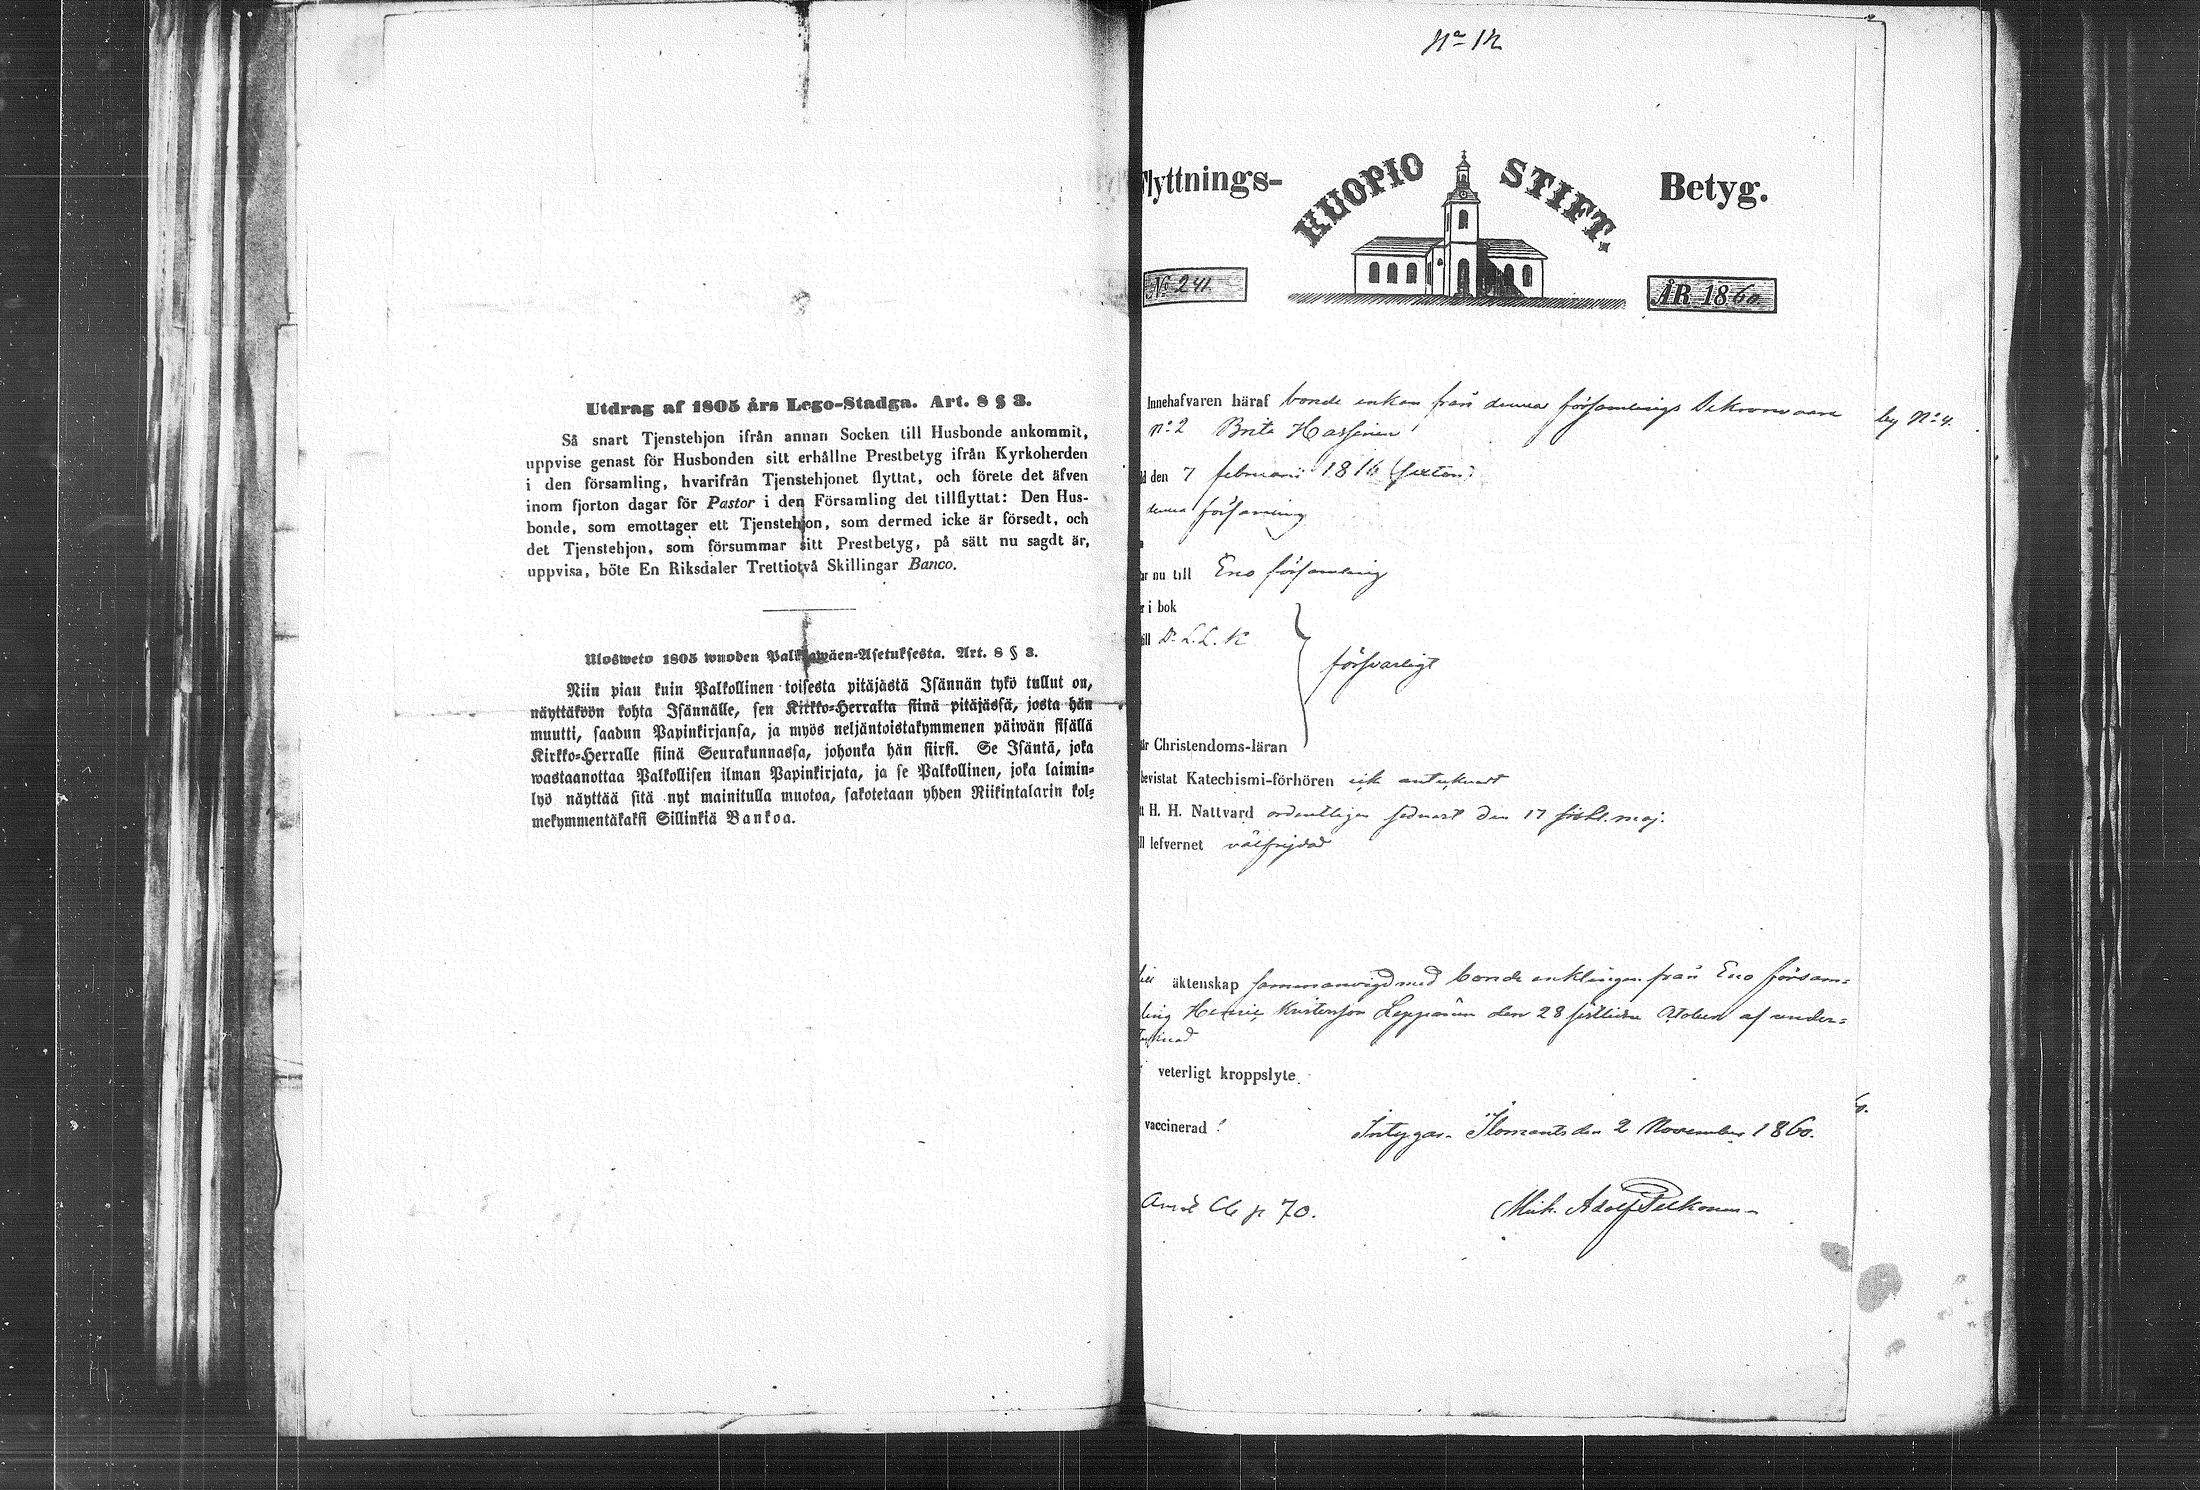 Utdrag af 1805 års Lego-Stadga. Art. 8 § 3.
Så snart Tjenstehjon ifrån annan Socken till Husbonde ankommit,
uppvise genast för Husbonden sitt erhållne Prestbetyg ifrån Kyrkoherden
i den församling, hvarifrån Tjenstehjonet flyttat, och förete det äfven
inom fjorton dagar för Pastor i den Församling det tillflyttat: Den Hus-
bonde, som emottager ett Tjenstehjon, som dermed icke är försedt, och
det Tjenstehjon, som försummar sitt Prestbetyg, på sätt nu sagdt är,
uppvisa, böte En Riksdaler Trettiotvå Skillingar Banco.
Ulosweto 1805 wuoden Palkkawäen-Asetuksesta. Art. 8 § 3.
Niin pian kuin Palkollinen toisesta pitäjästä Isännän tykö tullut on,
näyttäköön kohta Isännälle, sen Kirkko-Herralta siinä pitäjässä, josta hän
muutti, saadun Papinkirjansa, ja myös neljäntoistakymmenen päiwän sisällä
Kirkko-Herralle siinä Seurakunnassa, johonka hän siirsi. Se Isäntä, joka
wastaanottaa Palkollisen ilman Papinkirjata, ja se Palkollinen, joka laimin-
lyö näyttää sitä nyt mainitulla muotoa, sakotetaan yhden Riikintalarin kol-
mekymmentäkaksi Sillinkiä Bankoa.
No 12
Flyttnings- KUOPIO STIFT. Betyg.
No 241. ÅR 1860
Innehafvaren häraf bonde enkan från denna församlings by No 4.
No 2 Brita Hassinen
d den 7 februari 1816 (sexton)
denna församling
ar nu till Eno församling
r i bok
ill D. L. L. K
försvarligt
är Christendoms-läran
bevistat Katechismi-förhören ick antecknadt
t H. H. Nattvard ordentligen sednast den 17 sistl. maj.
ll lefvernet välfrejdad
till äktenskap sammanvigd med bonde enklingen från Eno försam-
ling Henric Leppänen den 28 sistlidne October af under-
tecknad
veterligt kroppslyte.
vaccinerad
Intygas. Ilomants den 2 November 1860.
p 70.
Mich. Adolf Pelkonen